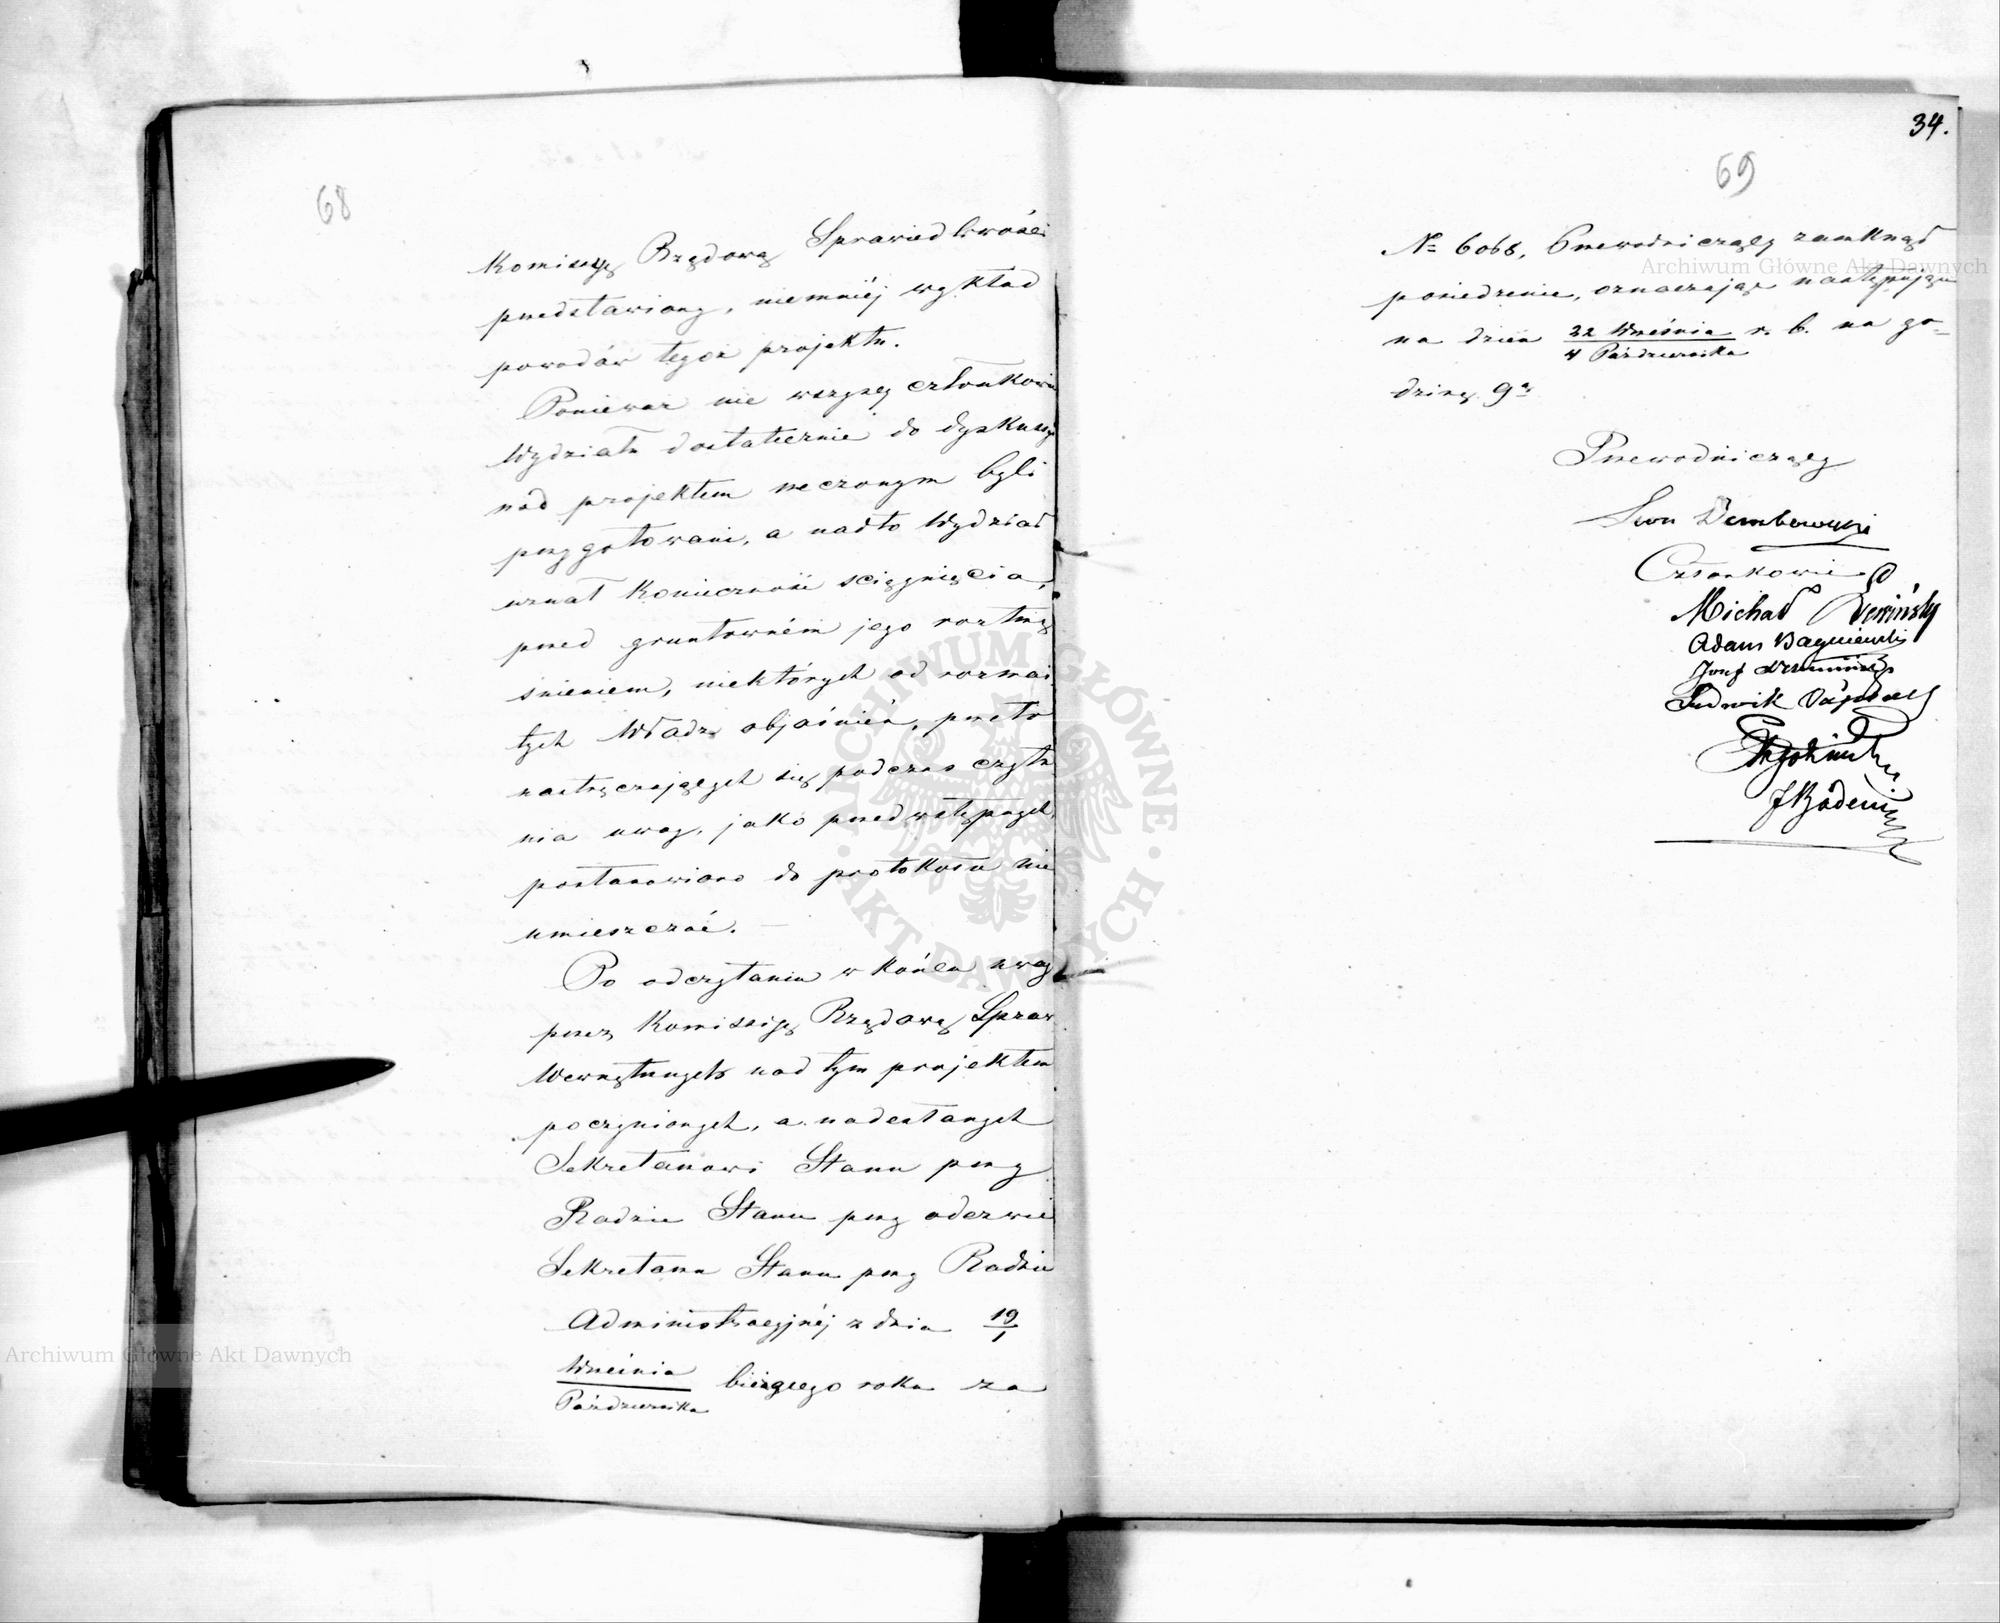 68
Komisyę Rządową Sprawiedliwości
przedstawiony, niemniéj wykład
powodów tegoż projektu.
Ponieważ nie wszyscy członkowie
Wydziału dostatecznie do dyskussyi
nad projektem rzeczonym byli
przygotowani, a nadto Wydział
uznał konieczność ściągnięcia,
przed gruntowném jego roztrzą
śnieniem, niektórych od rozmai
tych Władz objaśnień, przeto
nastręczających się podczas czyta
nia uwag, jako przedwstępnych,
postanowiono do protokołu nie
umieszczać. —
Po odczytaniu w końcu uwag
przez Komissiję Rządową Spraw
Wewnętrznych nad tym projektem
poczynionych, a nadesłanych
Sekretarzowi Stanu przy
Radzie Stanu przy odezwie
Sekretarza Stanu przy Radzie
Administracyjnéj z dnia 19/1
Września/Października bieżącego roku za
34.
69
Nr 6068, Przewodniczący zamknął
posiedzenie, oznaczając następujące
na dzień 22 Września/4 Października r. b. na go-
dzinę 9ą
Przewodniczący
Leon Dembowski
Członkowie
Michał
Adam Bagniewski
Józef
Ludwik
Archiwum Główne Akt Dawnych
Archiwum Główne Akt Dawnych
ARCHIWUM GŁÓWNE AKT DAWNYCH